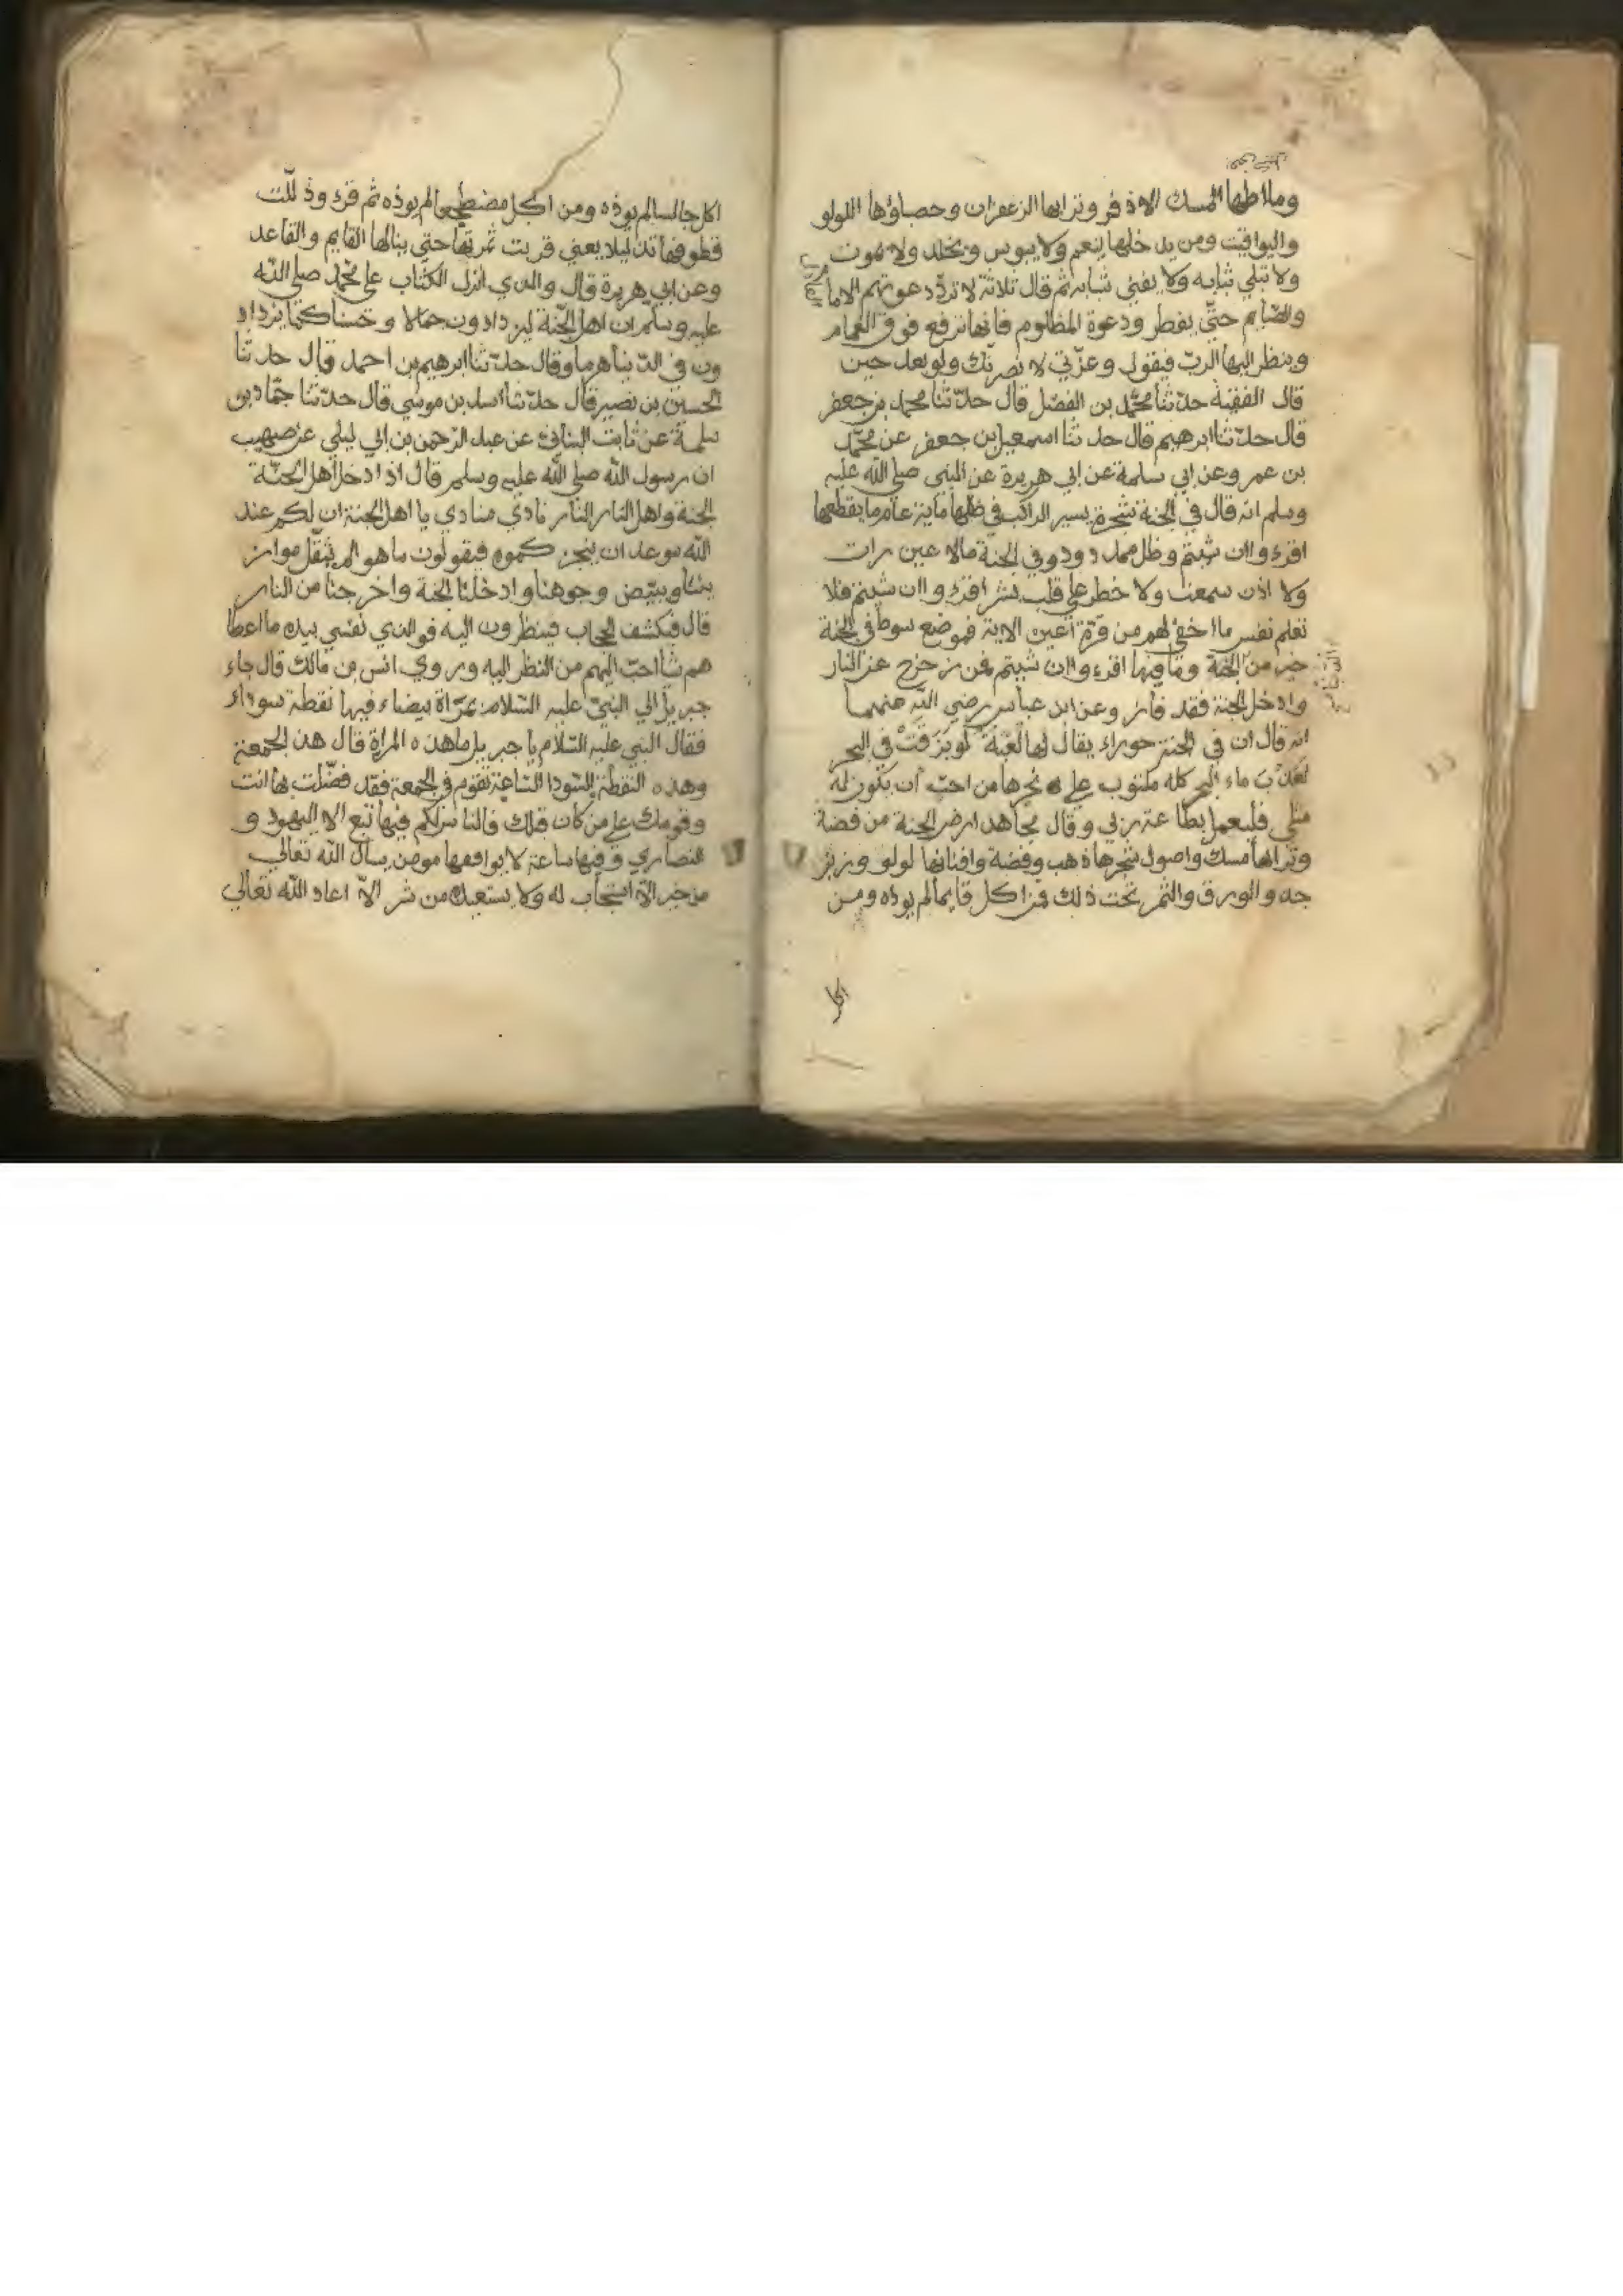 وملاطها المسك الاذفر وترابها الزعفران وحصباؤها اللولو
واليواقيت ومن يدخلها ينعم ولا يبوس ويخلد ولا يموت
ولا تبلي ثيابه ولا يفني شبابه ثم قال ثلاثة لا تردّ دعوتهم الاما
والصّايم حتّي يفطر ودعوة المظلوم فانها ترفع فوق الغمام
وينظر اليها الربّ فيقول وعزّتي لانصرنّك ولو بعد حين
قال الفقيه حدّثنا محمّد بن الفضل قال حدّثنا محمد بن جعفر
قال حدّثنا ابرهيم قال حدثنا اسمعيل بن جعفر عن محمّد
بن عمر وعن ابي سلمة عن ابي هريرة عن النبي صلي الله عليه
وسلم انه قال في الجنة شجرة يسير الراكب في ظلها مأية عام ما يقطعها
اقرء واان شيتم وظل ممدود وفي الجنة مالا عين رات
ولا اذن سمعت ولا خطر علي قلب بشر اقرء واان شيتم فلا
تعلم نفس ما اخفي لهم من قرّة اعين الاية فموضع سوط في الجنة
خير من الجنة وما فيها اقرء واان شيتم فمن زحزح عن النار
وادخل الجنة فقد فاز وعن ابن عباس رضي الله عنهما
انه قال ان في الجنة حوراء يقال لها لُعْبَة لو بَزَقَتْ في البحر
لعَذُبَ ماء البحر كله مكتوب علي نحرها من احبّ ان يكون له
مثلي فليعمل بطاعة ربي وقال مجاهد ارض الجنة من فضة
وترابها مسك واصول شجرها ذهب وفضة وافنانها لولو وزبر
جد والورق والثمر تحت ذلك فمن اكل قايما لم يوذه ومن
اكل جالسا لم يوذه ومن اكل مضطجعا لم يوذه ثم قرء وذلّلت
قطوفها تذليلا يعني قربت ثمرتها حتي ينالها القايم والقاعد
وعن ابي هريرة قال والذي انزل الكتاب علي محمّد صلي الله
عليه وسلم ان اهل الجنّة ليزدادون جمالا وحسنا كما يزداد
ون في الدّنيا هرما وقال حدّثنا ابرهيم بن احمد قال حدثنا
الحسين بن نصير قال حدثنا اسد بن موسي قال حدّثنا حمّاد بن
سلمة عن ثابت البناني عن عبد الرّحمن بن ابي ليلي عن صهيب
ان رسول الله صلي الله عليه وسلم قال اذا دخل اهل الجنّة
الجنة واهل النار النار نادي منادي يا اهل الجنة ان لكم عند
الله موعد ان ينجزكموه فيقولون ما هو الم يثقّل مواز
يننا ويبيّض وجوهنا وادخلنا الجنة واخرجنا من النار
قال فيكشف الحجاب فينظرون اليه فوالذي نفسي بيده ما اعطا
هم شا احبّ اليهم من النظر اليه وروي انس بن مالك قال جاء
جبريل الي النبيّ عليه السّلام بمرّاة بيضاء فيها نقطة سوداء
فقال النبي عليه السّلام يا جبريل ما هذه المراة قال هذ الجمعة
وهذه النقطة السّودا السّاعة تقوم في الجمعة فقد فضّلت بها انت
وقومك علي من كان قبلك فالناس لكم فيها تبع الا اليهود و
النصاري وفيها ساعة لا يوافقها مومن يسال الله تعالي
من خير الّا استجاب له ولا يستعيذ من شر الّا اعاد الله تعالي